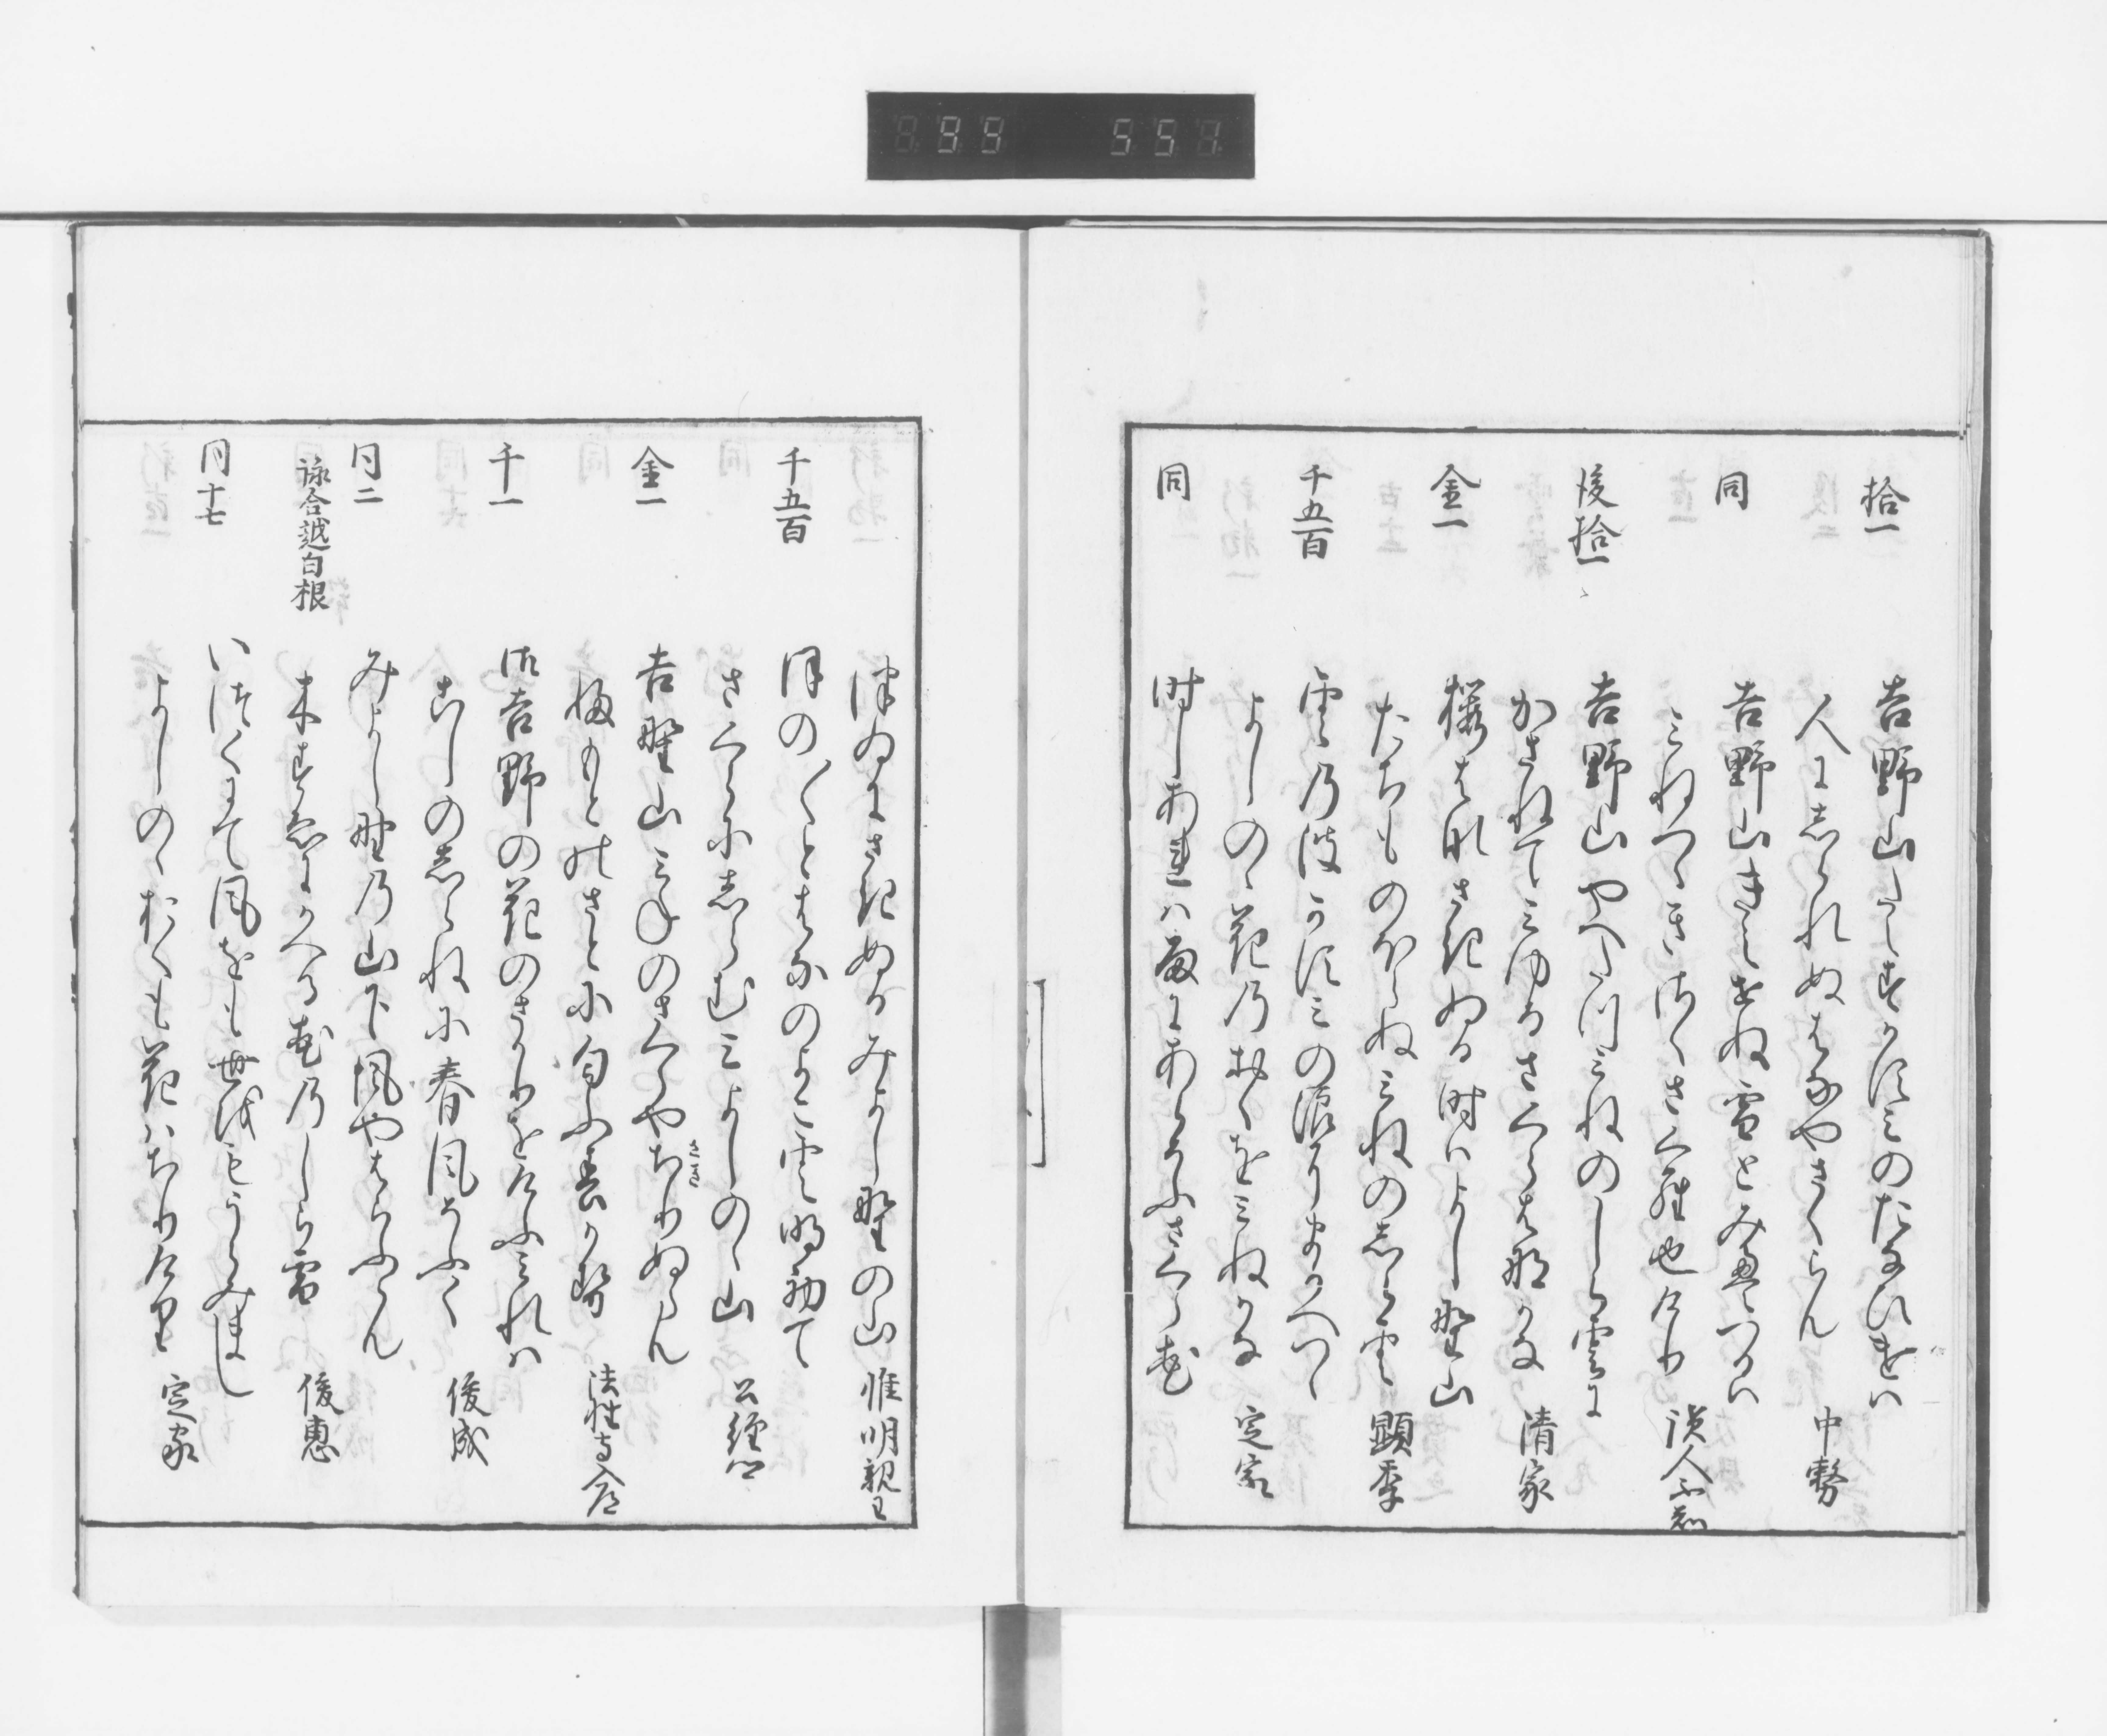 拾一
吉野山たえすかすみのたなひくは
人にしられぬはなやさくらん
中務
同
吉野山きえせぬ雪とみえつるは
みねつゝきさくさくら也けり
読人不知
後拾一
吉野山やへたつみねのしら雲に
かさねてみゆるさくらはなかな
清家
金一
桜はなさきぬる時はよし野山
たちものほらぬみねのしら雲
顕季
千五百
雲乃波かすみの浪にまかへつゝ
よしのゝ花乃おくをみぬかな
定家
同
時しあれは
さくら花
つゐにさきぬるみよし野の山
惟明親王
千五百
ほの〱とはなのよこ雲明初て
さくらにしらむみよしのゝ山
公経公
金一
吉野山みねのさくらやちりぬらん
さき
梅もとのさとに匂ふ春かせ
法性寺入道
千一
み吉野の花のさかりをけふみれは
こしのしらねに春風そふく
俊成
同二
みよし野乃山下風やはらふらん
詠合越白根
木すゑにかへる花乃しら雪
俊恵
同十七
いつくにて風をも世をもうらみまし
よしのゝおくも花はちりけり
定家
99 551